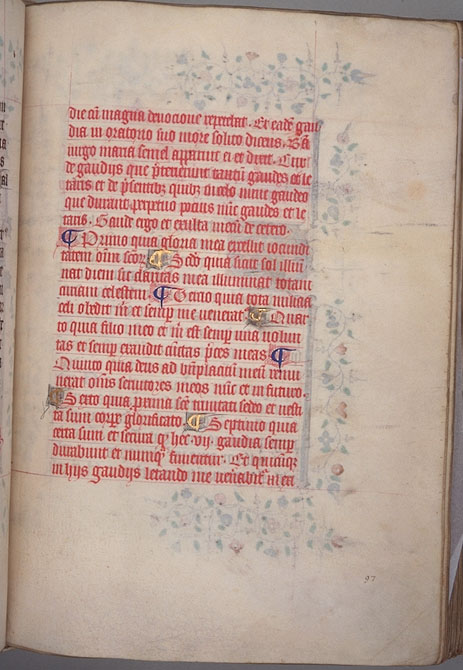 die cū magna devocione repetebat. Et eadē gau
dia in oratorio suo more solito dicens. Bā
virgo maria semel apparuit ei et dixit. Cur
de gaudys que pterierunt tantū gaudes et le
taris et de psentibz quibz in celo nunc gaudeo
que durant perpetuo pocius nūc gaudes et le
taris. Gaude ergo et exulta mecū de cetero.
¶ Primo quia gloria mea excellit iocundi
tatem oīm scōrz ¶ Scdo quia sicut sol illumi
nat diem sic claritas mea illuminat totam
curiam celestem. ¶ Tercio quia tota milicia
celi obedit mͥ et semp me venerat. ¶ Quar
to quia filio meo et mͥ est semp una volun
tas et semp exaudit cūctas pces meas ¶
Quinto quia deus ad bn̄placitū meū remu
nerat om̄s servitores meos nūc et in futuro.
¶ Sexto quia proxima scē trinitati sedeo et vesti
ta sum corpe glorificato. ¶ Septimo quia
certa sum et secura qͥ hec .vij. gaudia semp
durabunt et nunqͣ finientur. Et quicūqz
in hijs gaudijs letando me venerabitͬ in ec
97